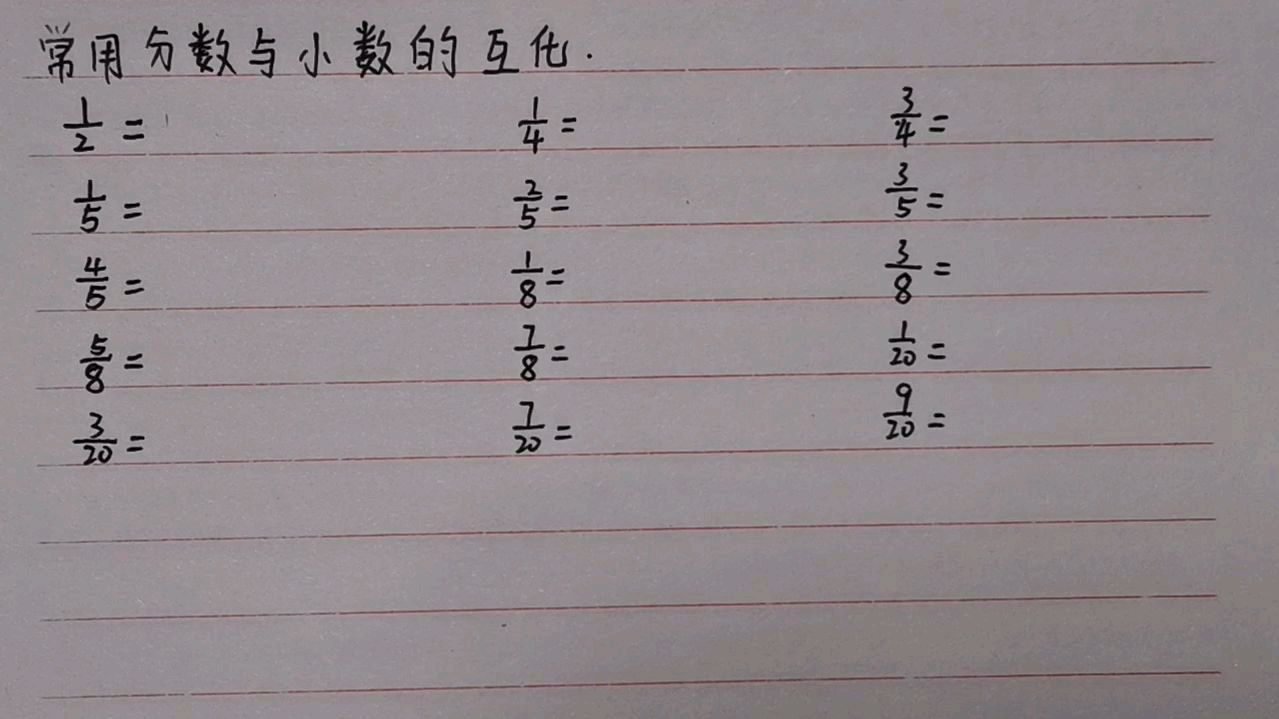 常用分数与小数的互化.
1/2 = 1/4 = 3/4 =
1/5 = 2/5 = 3/5 =
4/5 = 1/8 = 3/8 =
5/8 = 7/8 = 1/20 =
3/20 = 7/20 = 9/20 =